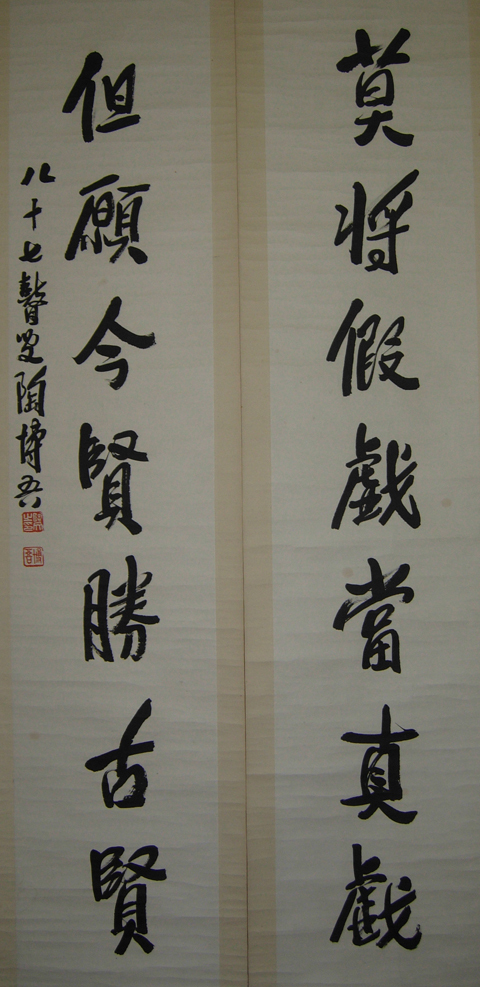 莫將假戲當真戲
但願今賢勝古賢
八十七聾叟陶博吾